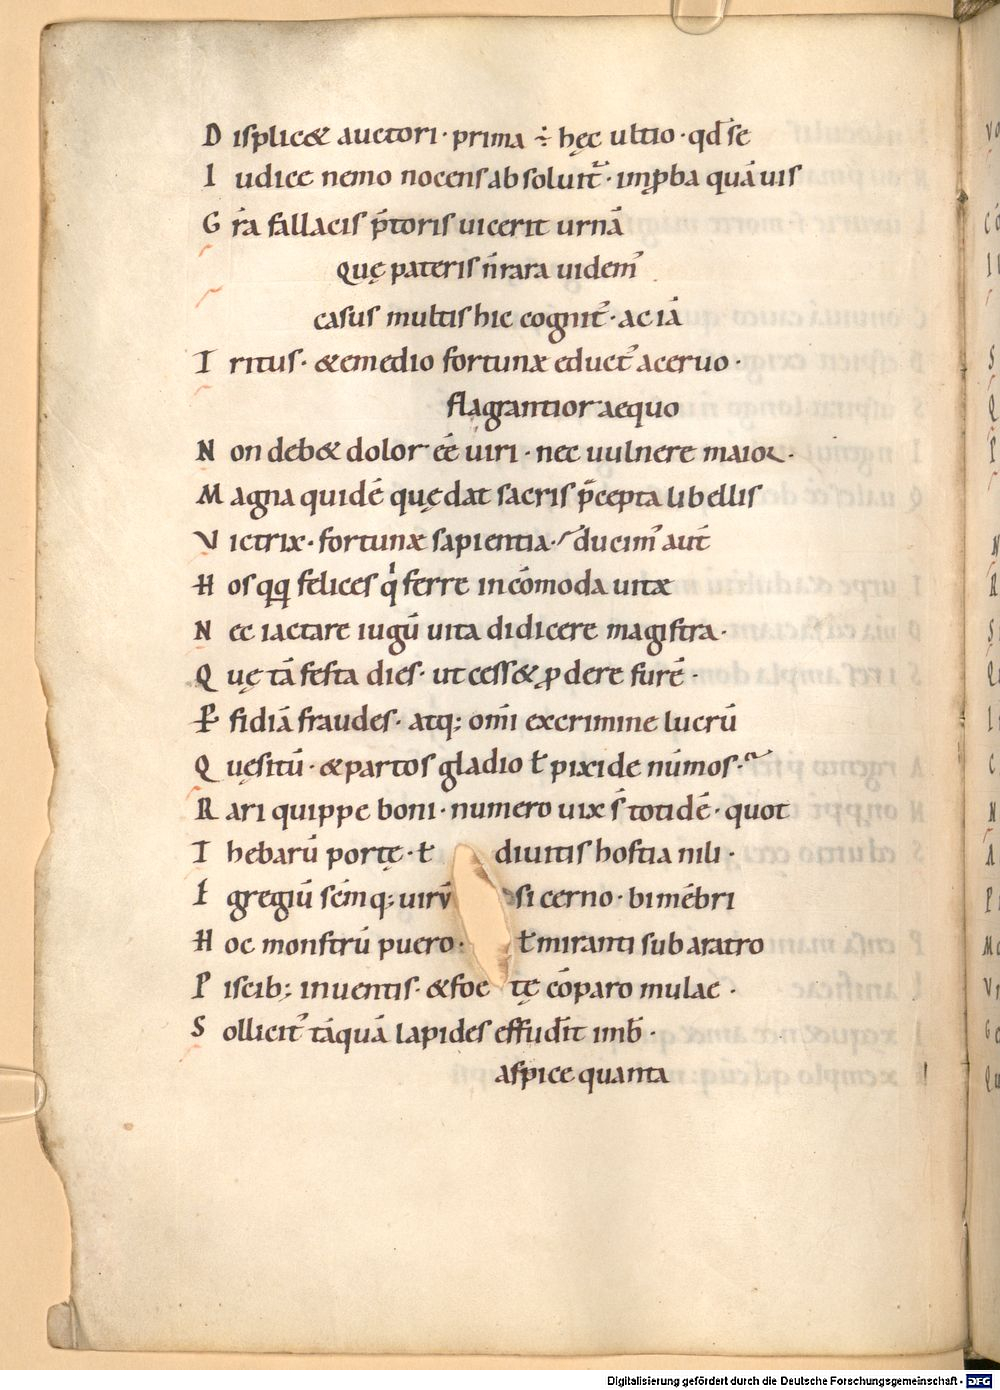 D isplic& auctori · prima ÷ hęc ultio · qđ se
I udice nemo nocens absoluit᷑ · imꝓba quāuis
G rā fallacis p̄toris uicerit urnā
Quę pateris n̄ rara uidem᷑
casus multis hic cognit᷑ · ac iā
T ritus · & e medio fortunæ educt᷑ aceruo ·
flagrantior aequo
N on deb& dolor eē uiri · nec uulnere maior ·
M agna quidē quę dat sacris p̄cepta libellis
V ictrix · fortunæ sapientia · ducim᷑ aut̄
H os qq felices qi ferre incōmoda uitæ
N ec iactare iugū uita didicere magistra ·
Q uę tā festa dies · ut cess& ꝓdere furē ·
P fidiā fraudes · atq; om̄i ex crimine lucrū
Q uęsitū · & partos gladio ł pixide nūmos ·
R ari quippe boni · numero uix s̄ totidē · quot
T hebarū portę · ł diuitis hostia nili ·
E gregiū sēmq; uirū si cerno · bimēbri
H oc monstrū puero · ł miranti sub aratro
P iscib; inuentis · & foe tę cōparo mulae ·
S ollicit᷑ tāquā lapides effudīt imb̄ ·
aspice quanta
Digitalisierung gefördert durch die Deutsche Forschungsgemeinschaft - DFG